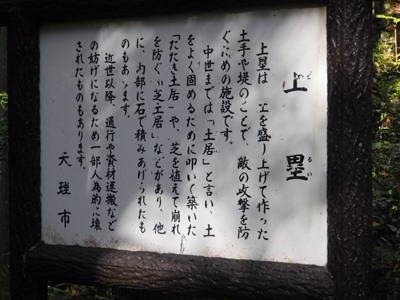 土塁
どるい
土塁は、土を盛り上げて作った
土手や堤のことで、敵の攻撃を防
ぐための施設です。
中世までは「土居」と言い、土
をよく固めるために叩いて築いた
「たたき土居」や、芝を植えて崩れ
を防ぐ「芝土居」などがあり、他
に、内部に石で積みあげられたも
のもあります。
近世以降、通行や資材運搬など
の妨げになるため一部人為的に壊
されたものもあります。
天理市